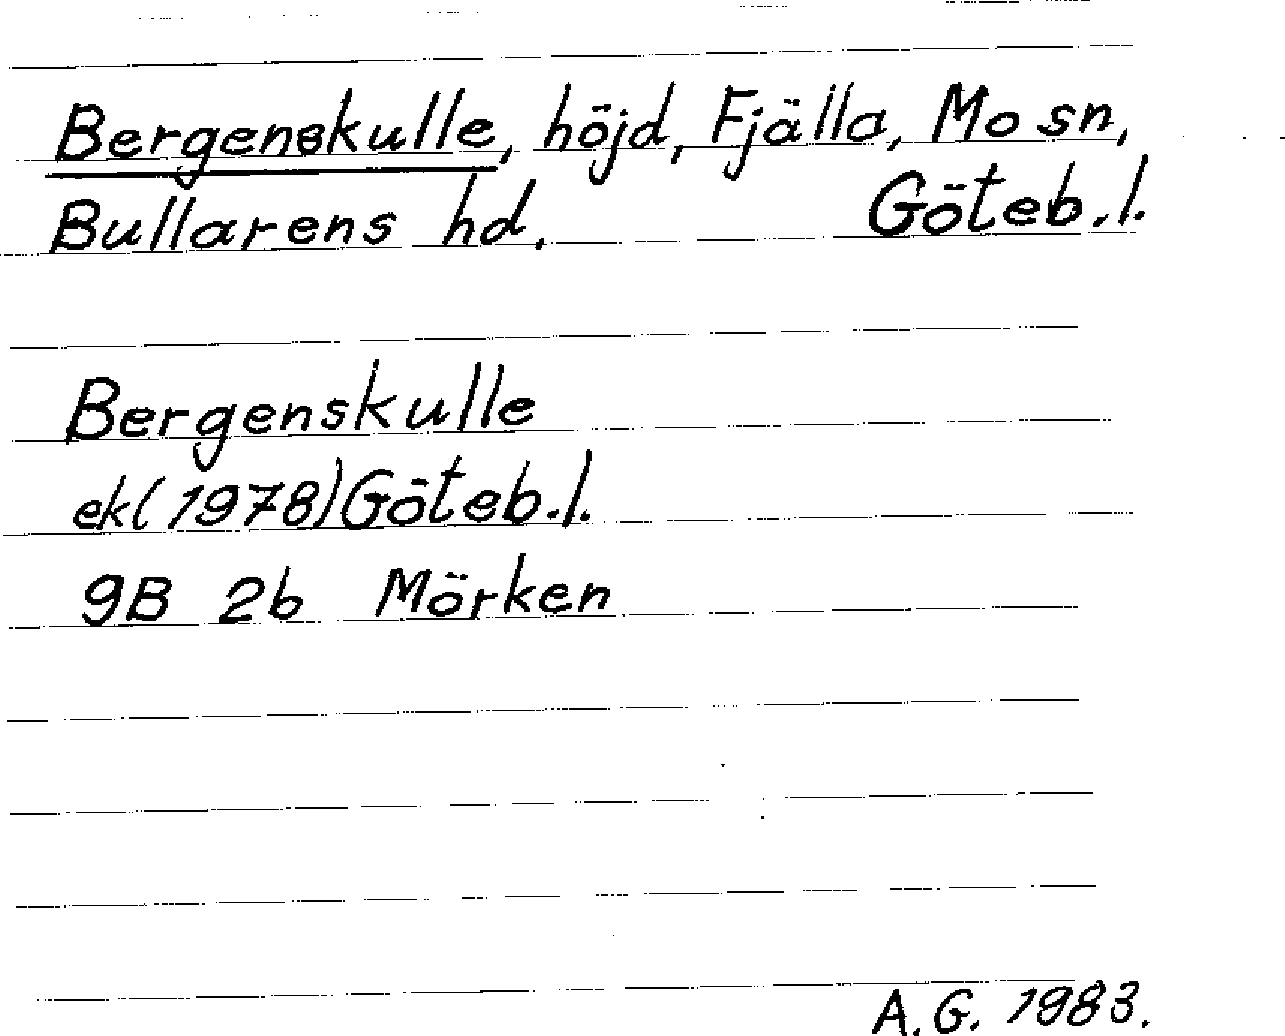 Bergenskulle, höjd, Fjälla, Mo sn,
Bullarens hd. Göteb.l.
Bergenskulle
ek(1978)Göteb.l.
9B 2b Mörken
A.G. 1983.